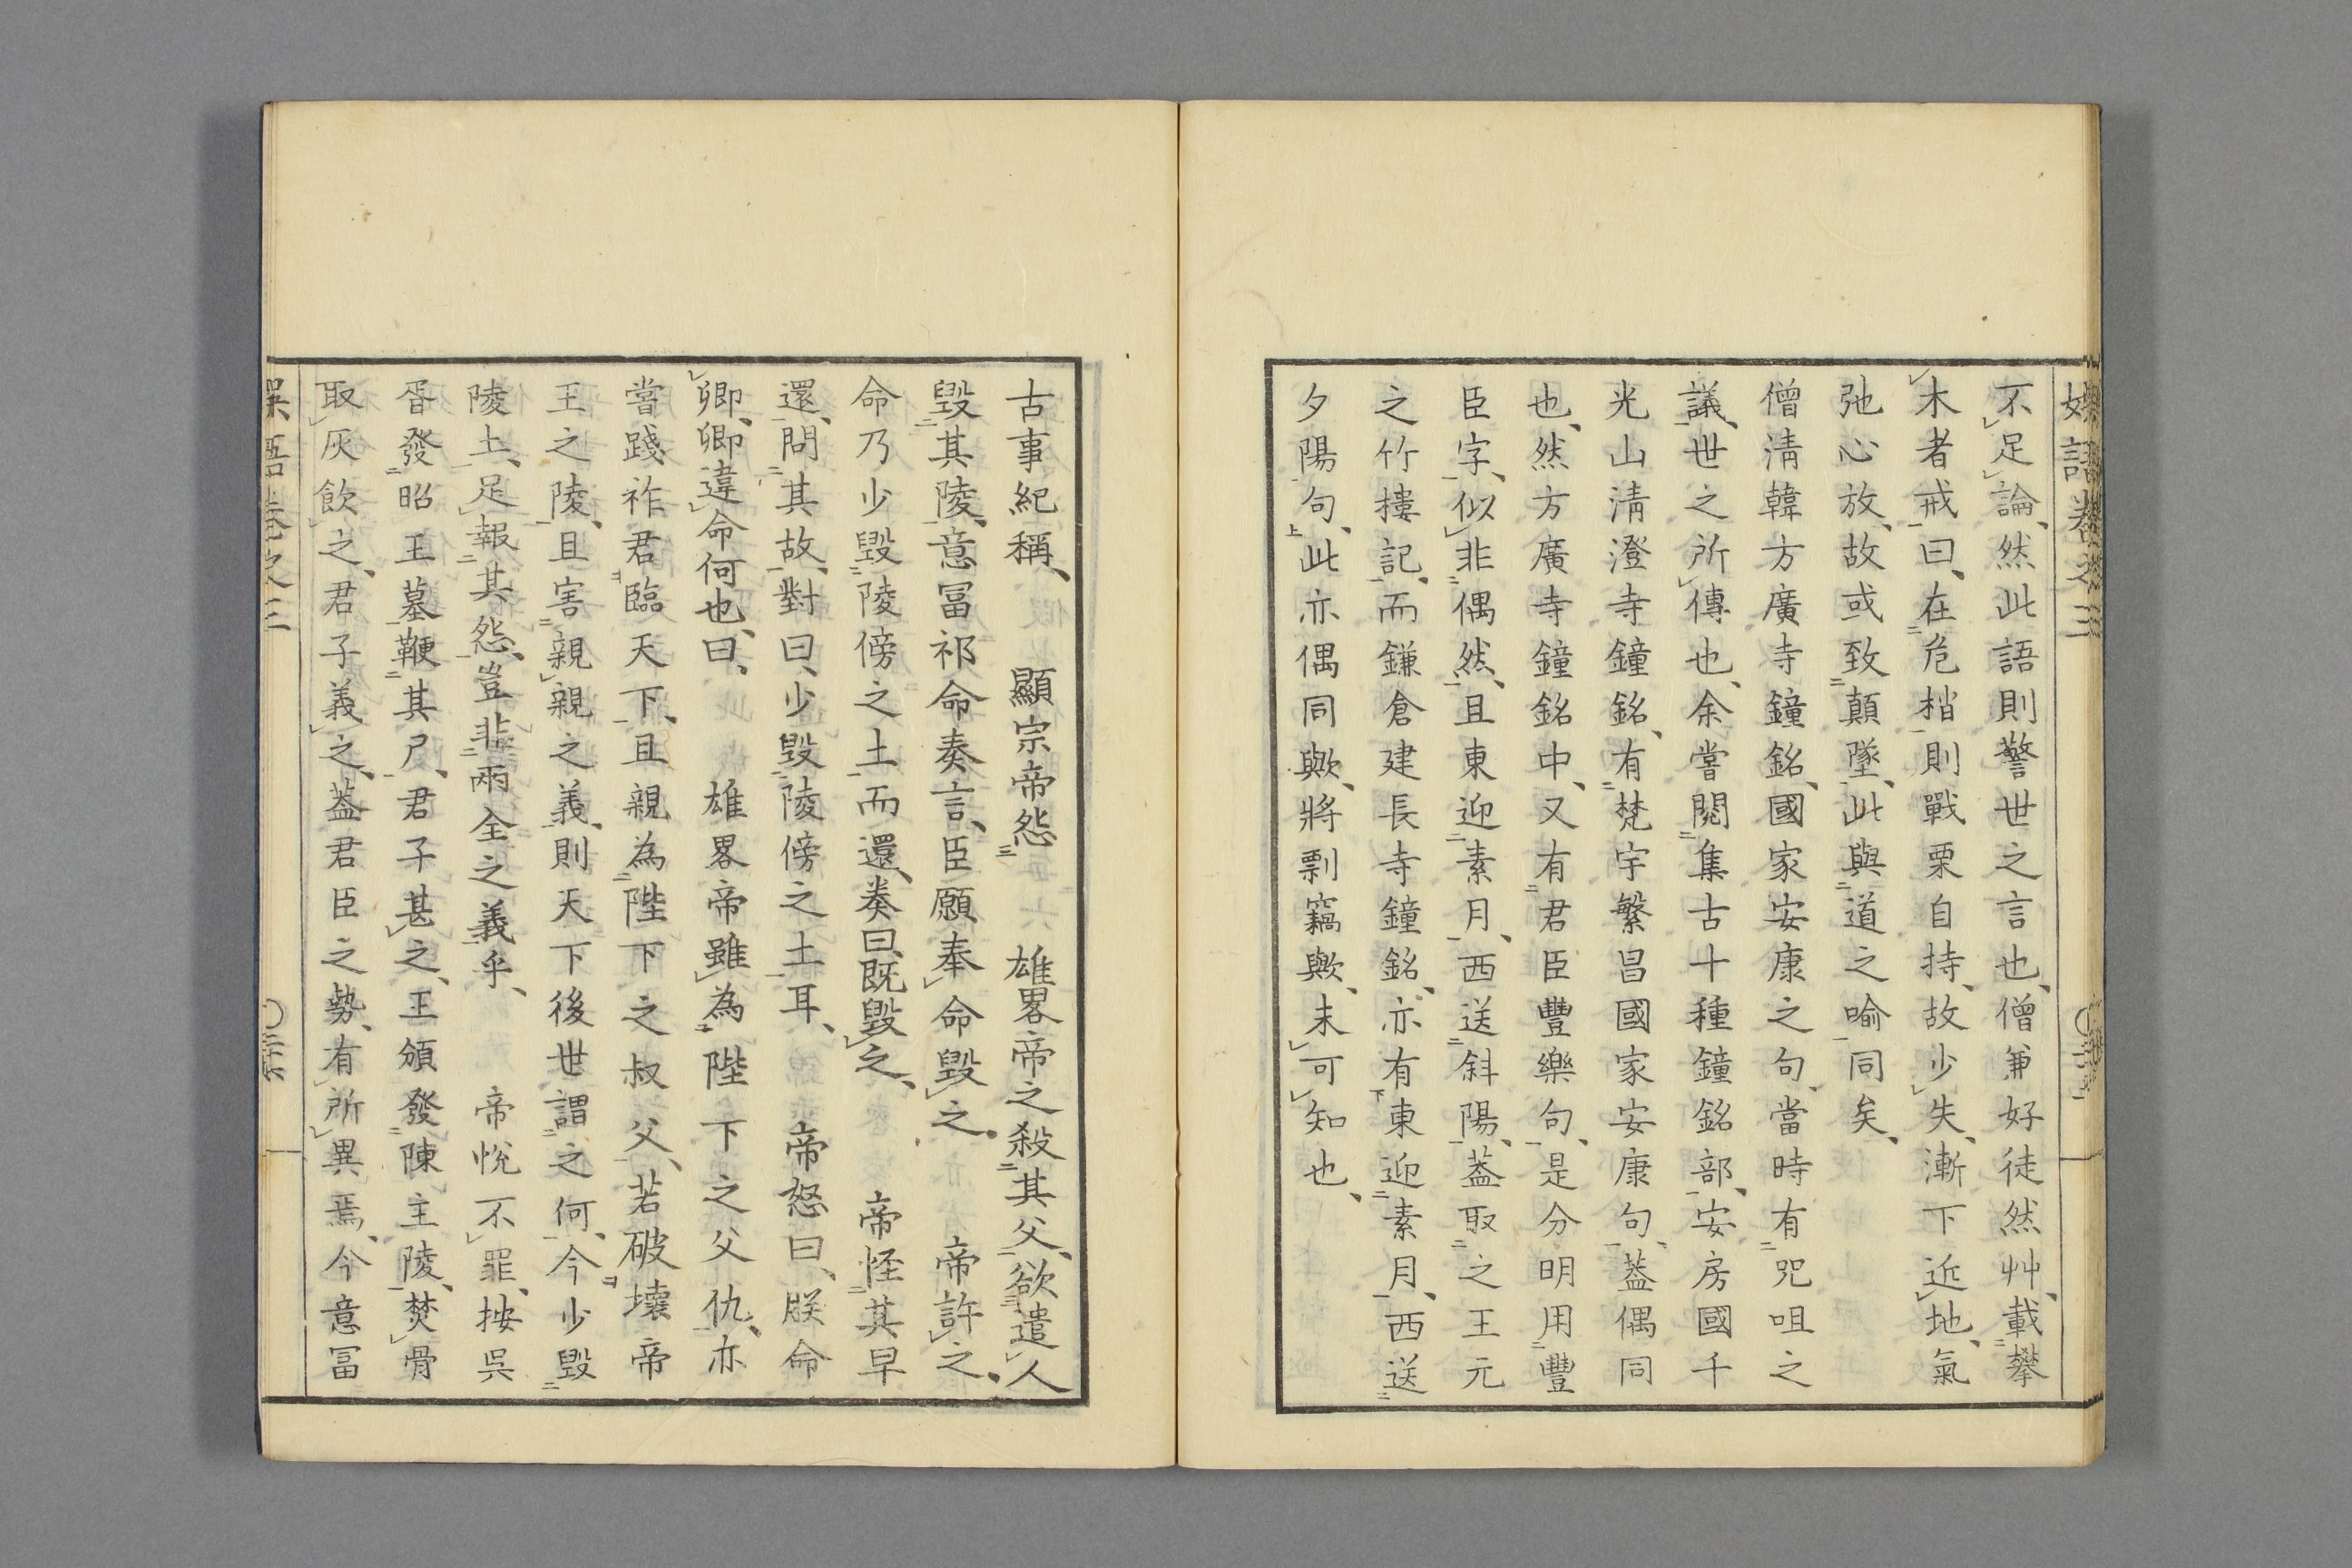 不足論、然此語則警世之言也、僧兼好徒然艸、載攀
木者戒曰、在危梢則戰栗自持、故少失、漸下近地、氣
弛心放、故或致顛墜、此與道之喻同矣、
僧清韓方廣寺鐘銘、國家安康之句、當時有咒咀之
議、世之所傳也、余嘗閱集古十種鐘銘部、安房國千
光山清澄寺鐘銘、有梵宇繁昌國家安康句、蓋偶同
也、然方廣寺鐘銘中、又有君臣豐樂句、是分明用豐
臣字、似非偶然、且東迎素月、西送斜陽、蓋取之王元
之竹樓記、而鎌倉建長寺鐘銘、亦有東迎素月、西送
夕陽句、此亦偶同歟、將剽竊歟、未可知也、
古事紀稱、顯宗帝怨雄畧帝之殺其父、欲遣人
毀其陵、意冨祁命奏言、臣願奉命毀之、帝許之、
命乃少毀陵傍之土而還、奏曰、既毀之、帝怪其早
還、問其故、對曰、少毀陵傍之土耳、帝怒曰、朕命
卿、卿違命何也、曰、雄畧帝雖為陛下之父仇、亦
嘗踐祚君臨天下、且親為陛下之叔父、若破壞帝
王之陵、且害親親之義、則天下後世謂之何、今少毀
陵土、足報其怨、豈非兩全之義乎、帝悅不罪、按吳
胥發昭王墓鞭其尸、君子甚之、王頒發陳主陵、焚骨
取灰飲之、君子義之、蓋君臣之勢、有所異焉、今意冨